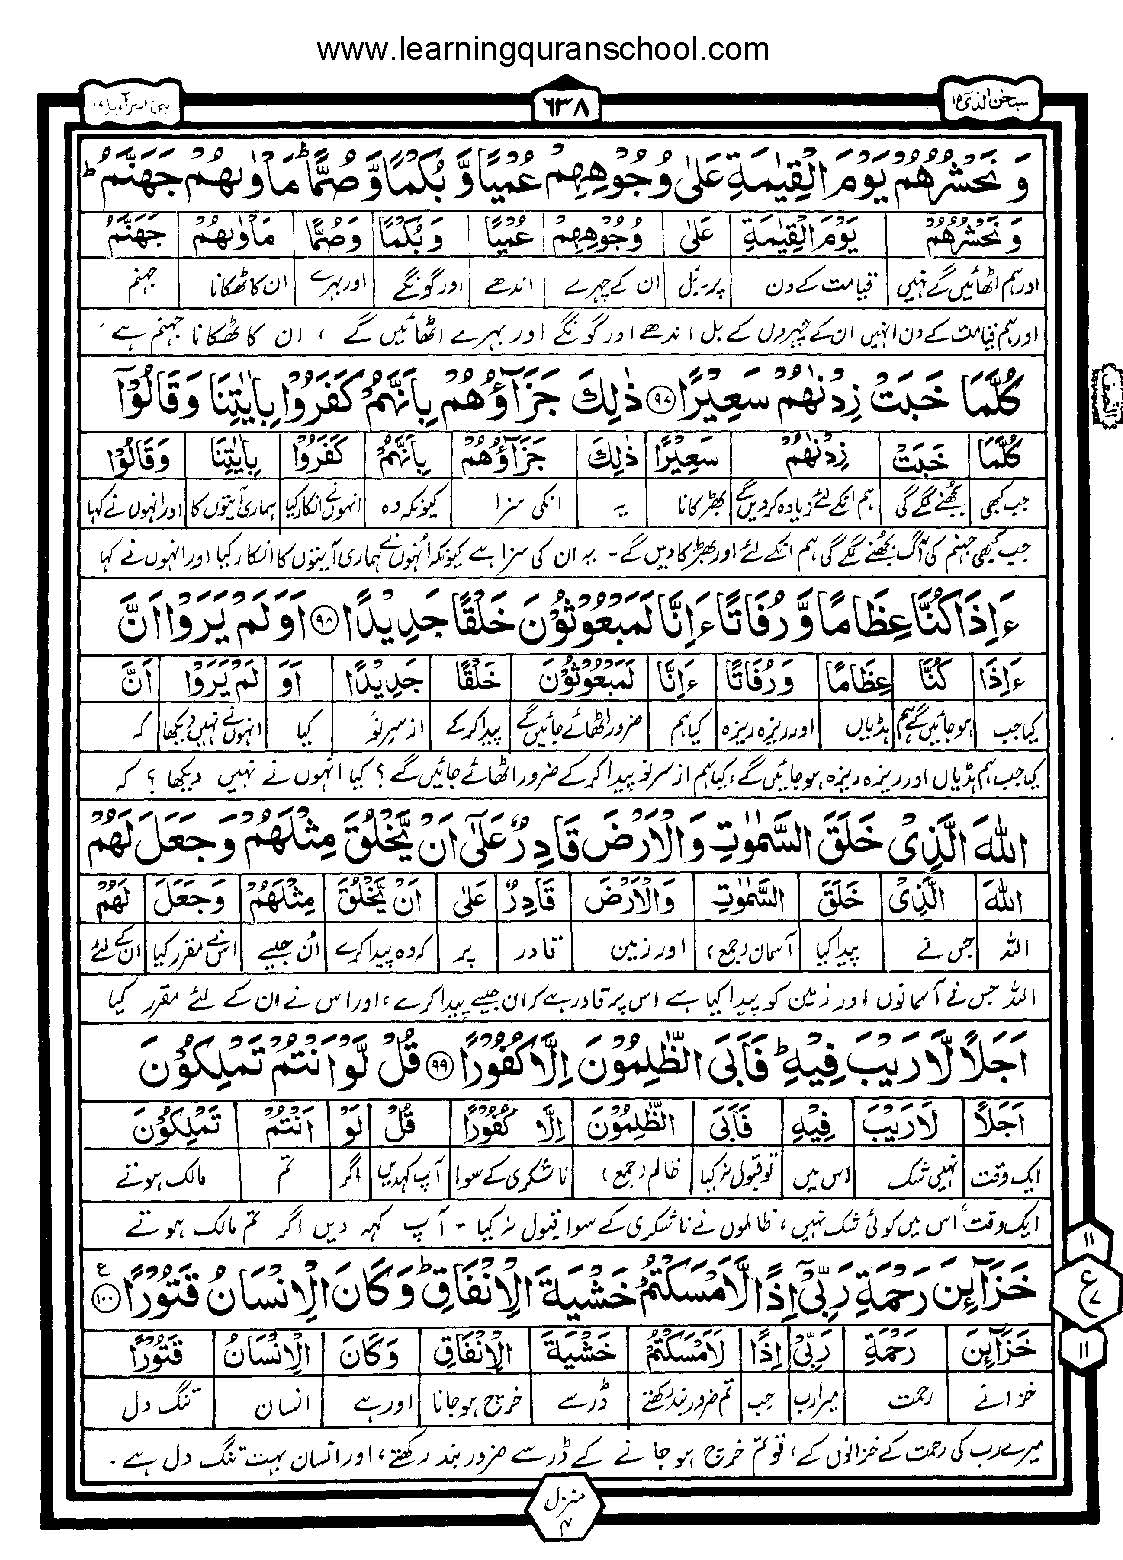 www.learningquranschool.com
سبحن الذی ١٥
٦٣٨
بنی اسرآءیل ١٧
وَ نَحْشُرُهُمْ يَوْمَ الْقِيٰمَةِ عَلٰى وُجُوْهِهِمْ عُمْيًا وَّ بُكْمًا وَّ صُمًّا ؕ مَاْوٰىهُمْ جَهَنَّمُ ؕ
وَ نَحْشُرُهُمْ يَوْمَ الْقِيٰمَةِ عَلٰى وُجُوْهِهِمْ عُمْيًا وَ بُكْمًا وَ صُمًّا مَاْوٰىهُمْ جَهَنَّمُ
اور ہم اٹھائیں گے انہیں قیامت کے دن پر۔ بل ان کے چہرے اندھے اور گونگے اور بہرے ان کا ٹھکانا جہنم
اور ہم قیامت کے دن انہیں ان کے چہروں کے بل اندھے اور گونگے اور بہرے اٹھائیں گے ، ان کا ٹھکانا جہنم ہے ،
كُلَّمَا خَبَتْ زِدْنٰهُمْ سَعِيْرًا ٩٧ ذٰلِكَ جَزَآؤُهُمْ بِاَنَّهُمْ كَفَرُوْا بِاٰيٰتِنَا وَ قَالُوْٓا
كُلَّمَا خَبَتْ زِدْنٰهُمْ سَعِيْرًا ذٰلِكَ جَزَآؤُهُمْ بِاَنَّهُمْ كَفَرُوْا بِاٰيٰتِنَا وَ قَالُوْٓا
جب کبھی بجھنے لگے گی ہم انکے لئے زیادہ کر دیں گے بھڑکانا یہ انکی سزا کیونکہ وہ انہوں نے انکار کیا ہماری آیتوں کا اور انہوں نے کہا
جب کبھی جہنم کی آگ بجھنے لگے گی ہم انکے لئے اور بھڑکا دیں گے - یہ ان کی سزا ہے کیونکہ انہوں نے ہماری آیتوں کا انکار کیا اور انہوں نے کہا
ءَاِذَا كُنَّا عِظَامًا وَّ رُفَاتًا ءَاِنَّا لَمَبْعُوْثُوْنَ خَلْقًا جَدِيْدًا ٩٨ اَوَ لَمْ يَرَوْا اَنَّ
ءَاِذَا كُنَّا عِظَامًا وَ رُفَاتًا ءَاِنَّا لَمَبْعُوْثُوْنَ خَلْقًا جَدِيْدًا اَوَ لَمْ يَرَوْا اَنَّ
کیا جب ہو جائیں گے ہم ہڈیاں اور ریزہ ریزہ کیا ہم ضرور اٹھائے جائیں گے پیدا کر کے از سر نو کیا انہوں نے نہیں دیکھا کہ
کیا جب ہم ہڈیاں اور ریزہ ریزہ ہو جائیں گے، کیا ہم از سر نو پیدا کر کے ضرور اٹھائے جائیں گے ؟ کیا انہوں نے نہیں دیکھا ؟ کہ
اللّٰهَ الَّذِيْ خَلَقَ السَّمٰوٰتِ وَ الْاَرْضَ قَادِرٌ عَلٰٓى اَنْ يَّخْلُقَ مِثْلَهُمْ وَ جَعَلَ لَهُمْ
اللّٰهَ الَّذِيْ خَلَقَ السَّمٰوٰتِ وَالْاَرْضَ قَادِرٌ عَلٰى اَنْ يَّخْلُقَ مِثْلَهُمْ وَ جَعَلَ لَهُمْ
اللہ جس نے پیدا کیا آسمان (جمع) اور زمین قادر پر کہ وہ پیدا کرے ان جیسے اس نے مقرر کیا ان کے لئے
اللہ جس نے آسمانوں اور زمین کو پیدا کیا ہے اس پر قادر ہے کہ ان جیسے پیدا کرے، اور اس نے ان کے لئے مقرر کیا
اَجَلًا لَّا رَيْبَ فِيْهِ ؕ فَاَبَى الظّٰلِمُوْنَ اِلَّا كُفُوْرًا ٩٩ قُلْ لَّوْ اَنْتُمْ تَمْلِكُوْنَ
اَجَلًا لَا رَيْبَ فِيْهِ فَاَبَى الظّٰلِمُوْنَ اِلَّا كُفُوْرًا قُلْ لَوْ اَنْتُمْ تَمْلِكُوْنَ
ایک وقت نہیں شک اس میں تو قبول نہ کیا ظالم (جمع) ناشکری کے سوا آپ کہدیں اگر تم مالک ہوتے
ایک وقت، اس میں کوئی شک نہیں، ظالموں نے ناشکری کے سوا قبول نہ کیا - آپ کہہ دیں اگر تم مالک ہوتے
خَزَآئِنَ رَحْمَةِ رَبِّيْٓ اِذًا لَّاَمْسَكْتُمْ خَشْيَةَ الْاِنْفَاقِ ؕ وَ كَانَ الْاِنْسَانُ قَتُوْرًا ١٠٠ ع
خَزَآئِنَ رَحْمَةِ رَبِّيْ اِذًا لَاَمْسَكْتُمْ خَشْيَةَ الْاِنْفَاقِ وَ كَانَ الْاِنْسَانُ قَتُوْرًا
خزانے رحمت میرا رب جب تم ضرور بند رکھتے ڈر سے خرچ ہو جانا اور ہے انسان تنگ دل
میرے رب کی رحمت کے خزانوں کے، تو تم خرچ ہو جانے کے ڈر سے ضرور بند رکھتے، اور انسان بہت تنگ دل ہے ۔
١١
ع
١١
منزل
٤